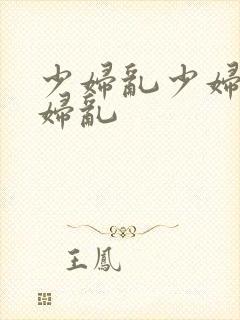 少婦亂少婦
婦亂
王鳳